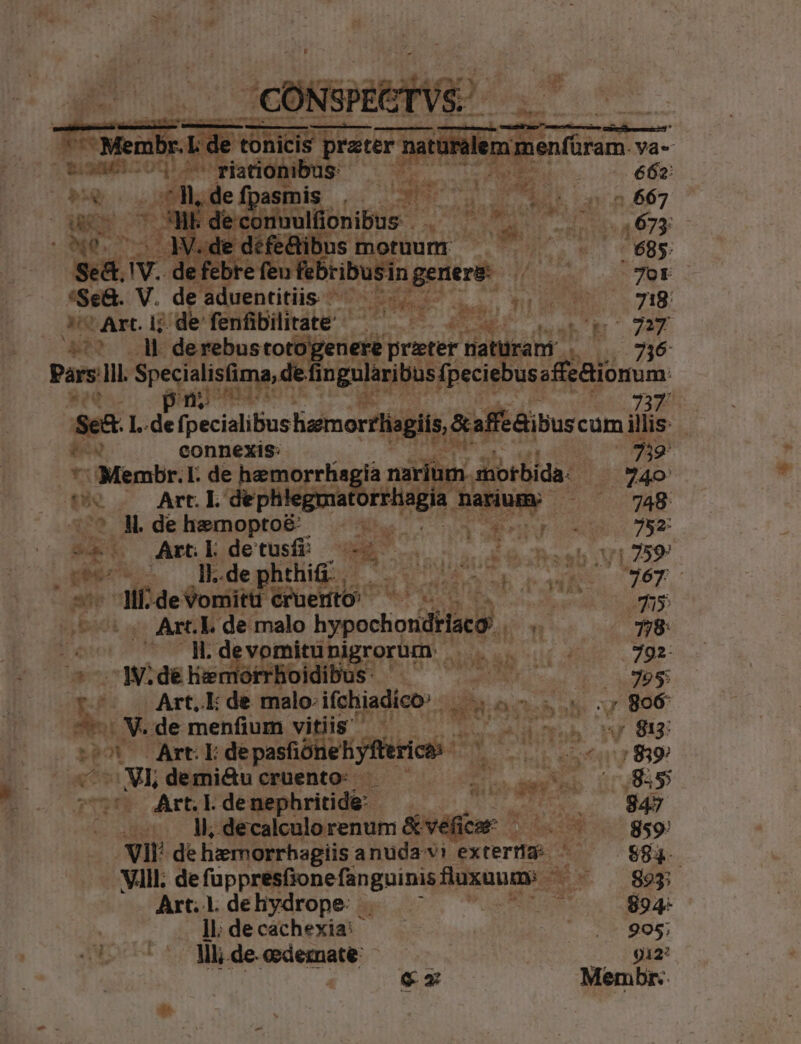 CONSPECTVS.
Membr. I. de tonicis præter naturalem menſüram va-
riationibus 662
II. de ſpasmis 667
III. de conuulſionibus 673
IV. de defectibus motuum 685
Sect. IV. de febre ſeu febribus in genere 701
Sect. V. de aduentitiis 718
Art. I. de ſenſibilitate 727
II de rebus toto genere præter naturam 736
Pars III. Specialisſima, de ſingularibus ſpeciebus affectionum
737
Sect. I. de ſpecialibus hæmorrhagiis, & affectibus cum illis
connexis 739
Membr. I. de hæmorrhagia narium morbida 740
Art. I. de phlegmatorrhagia narium 748
II. de hæmoptoë 752
Art. I. de tusſi 759
II. de phthiſi 767
III. de vomitu cruento 775
Art. I. de malo hypochondriaco 778
II. de vomitu nigrorum 792
IV. de hæmorrhoidibus 795
Art. I. de malo iſchiadico 806
V. de menſium vitiis 813
Art. I. de pasſione hyſterica 819
VI, de mictu cruento 835
Art. I. de nephritide 847
II, de calculo renum & veſicæ 859
VII de hæmorrhagiis a nuda vi externa 884
VIII. de ſuppresſione ſanguinis fluxuum 893
Art. I. de hydrope 894
II. de cachexia 905
III. de œdemate 912
Membr.